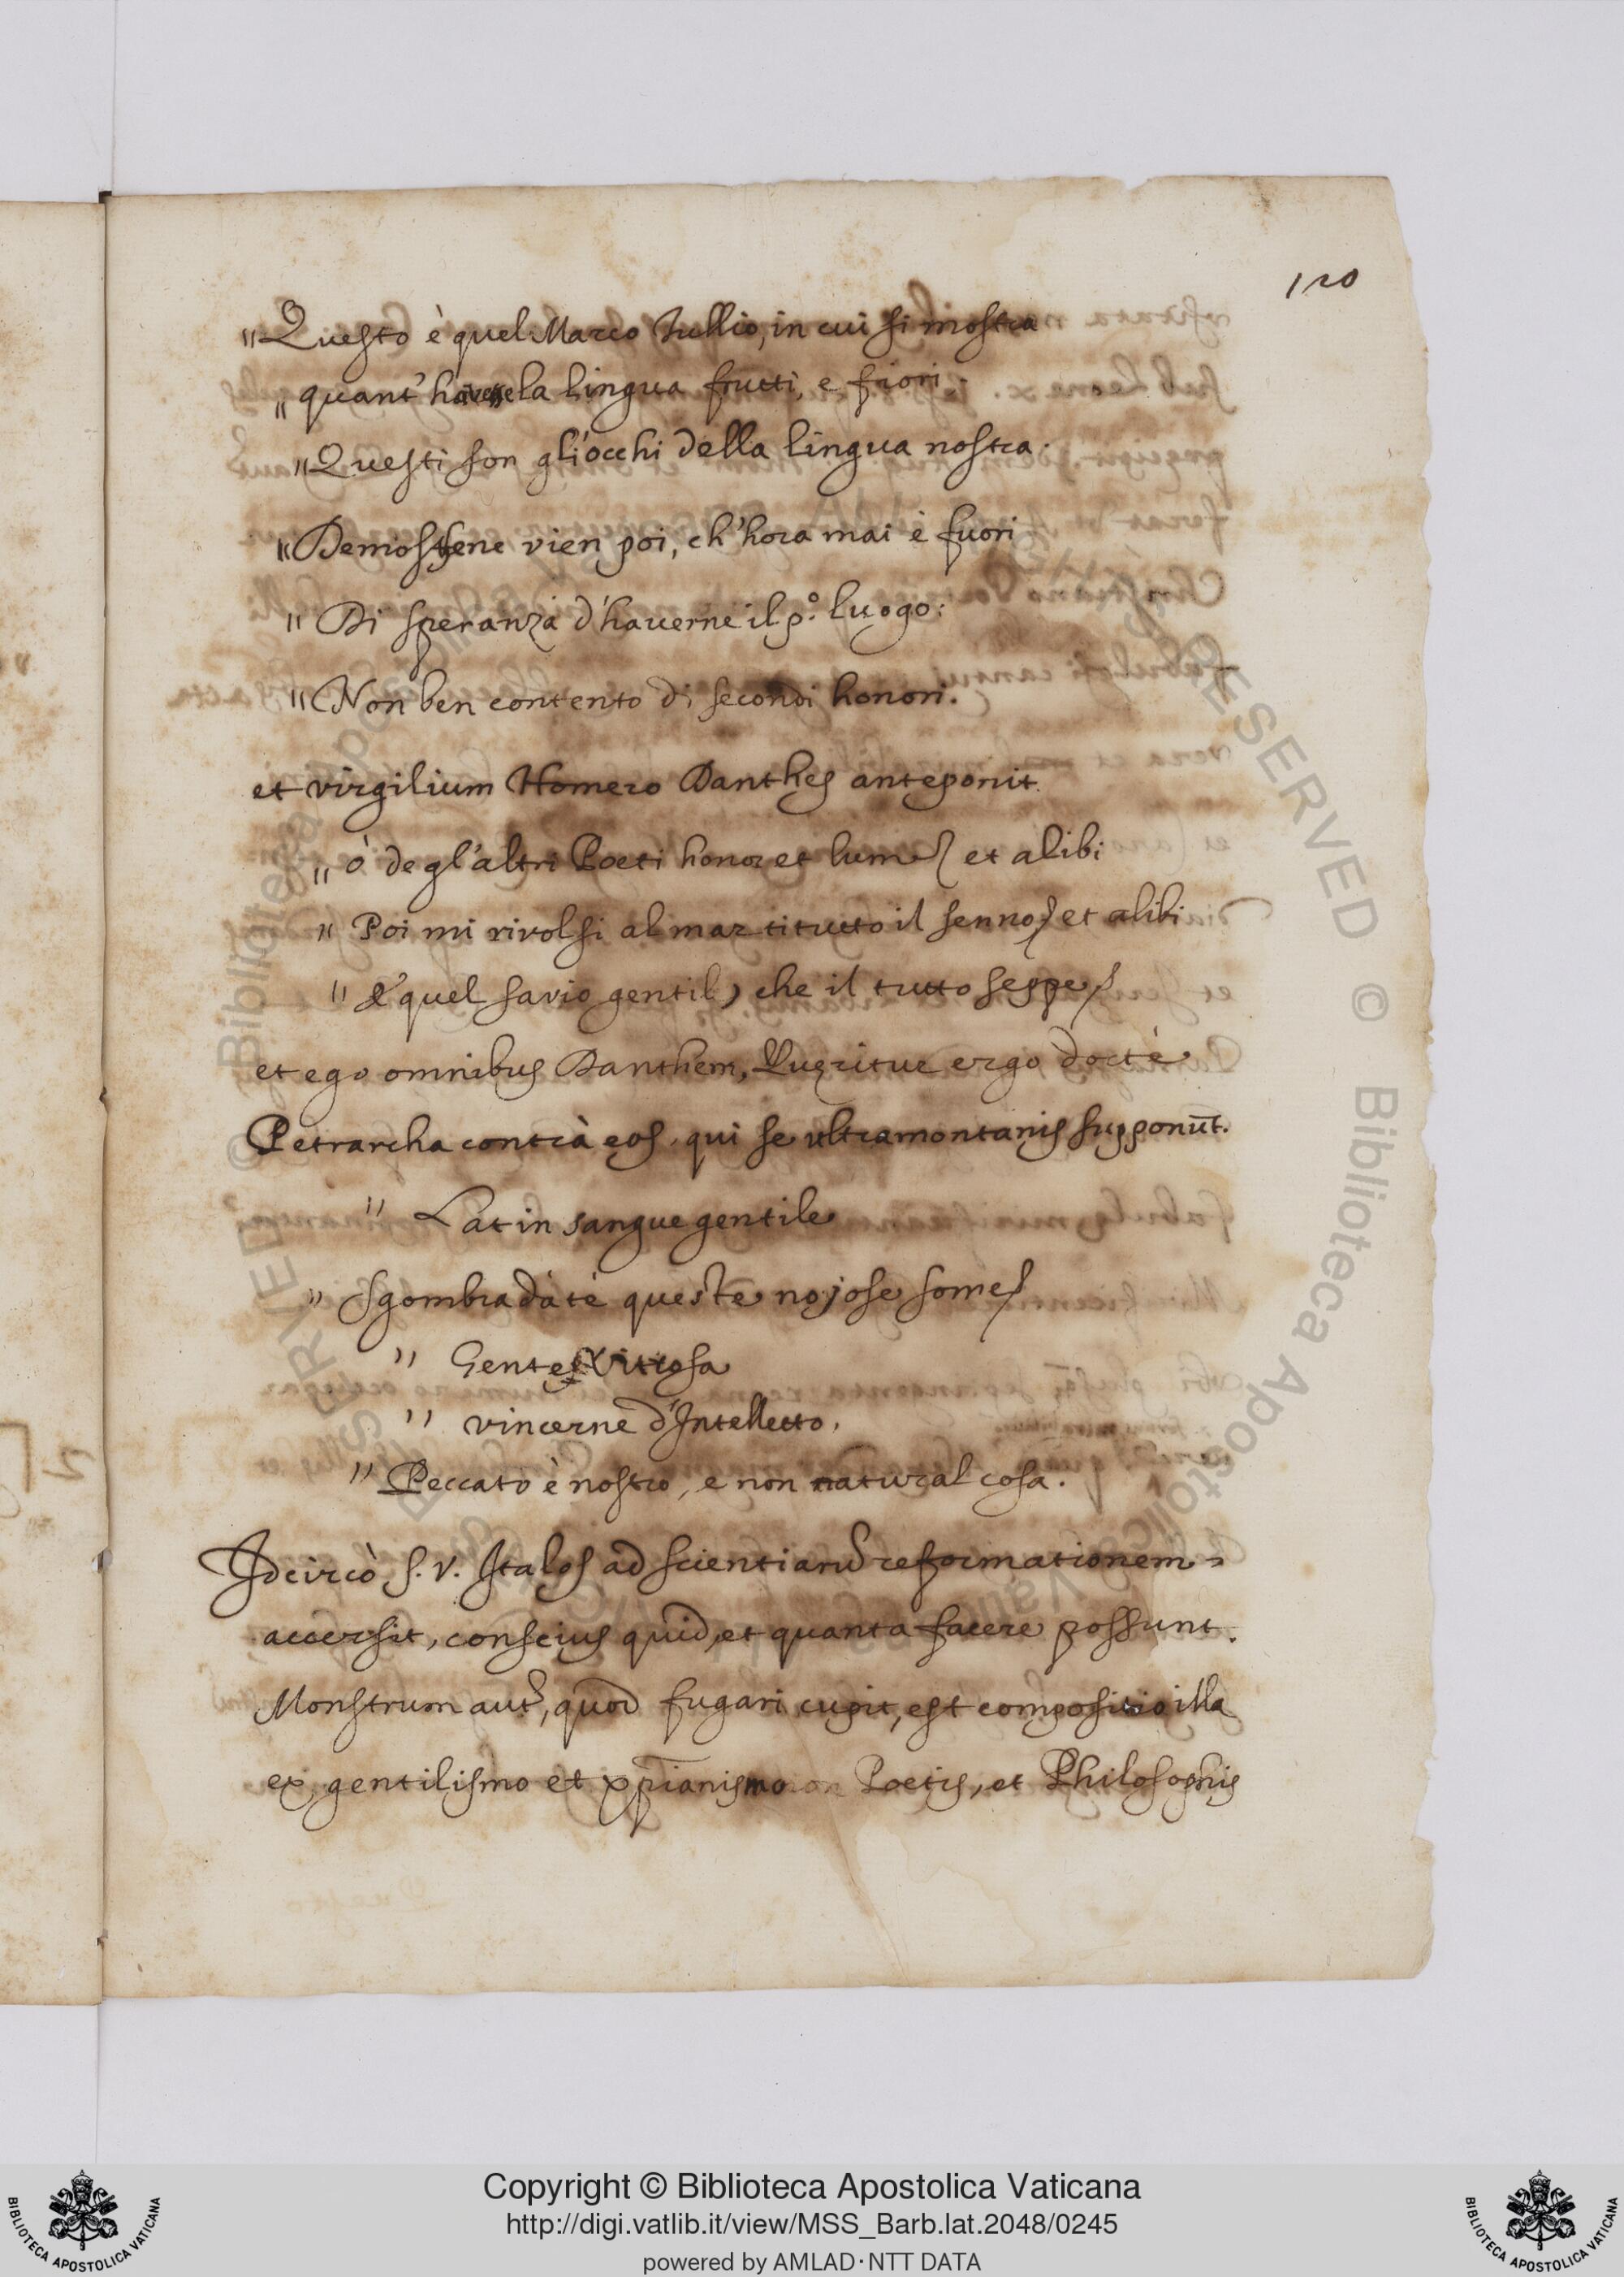 120
"Questo è quel Marco Tullio, in cui si mostra
"quant' havesse la lingua frutti, e fiori.
"Questi son gli occhi della lingua nostra.
"Demosthene vien poi, ch'hora mai è fuori
"Di speranza d'haverne il p.º luogo:
"Non ben contento di secondi honori.
et virgilium Homero Danthes anteponit.
"ò degl'altri Poeti honor et lume/ et alibi
"Poi mi rivolsi al mar ti tutto il senno/ et alibi
"E quel savio gentil, che il tutto seppe/
et ego omnibus Danthem, Queritur ergo doctè
Petrarcha contrà eos, qui se ultramontanis supponūt.
"Latin sangue gentile
"Sgombra da tè queste nojose some/
"Gente
"vincerne d'Intelletto.
"Peccato è nostro, e non natural cosa.
Idcircò S. V. Italos ad scientiarū reformationem
accersit, conscius quid, et quanta facere possunt.
Monstrum aut, quod fugari cupit, est compositio illa
ex gentilismo et xp̄ianismo Poetis, et Philosophis
RESERVED © Biblioteca Apostolica Vaticana
Copyright © Biblioteca Apostolica Vaticana
http://digi.vatlib.it/view/MSS_Barb.lat.2048/0245
powered by AMLAD·NTT DATA
BIBLIOTECA APOSTOLICA VATICANA
BIBLIOTECA APOSTOLICA VATICANA